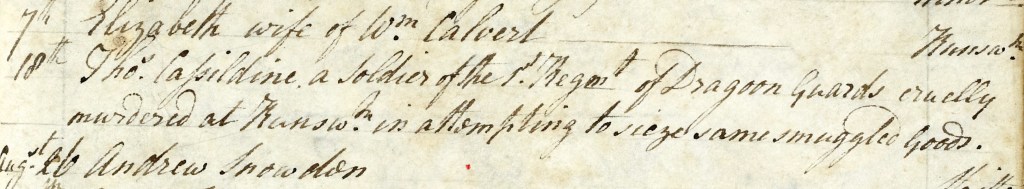 7th Elizabeth wife of Wm Calvert Runswk
18th Thos. Cassildine a Soldier of the 1st Regmt of Dragoon Guards cruelly
murdered at Runswk in attempting to sieze some smuggled Goods.
Augst 26 Andrew Snowdon